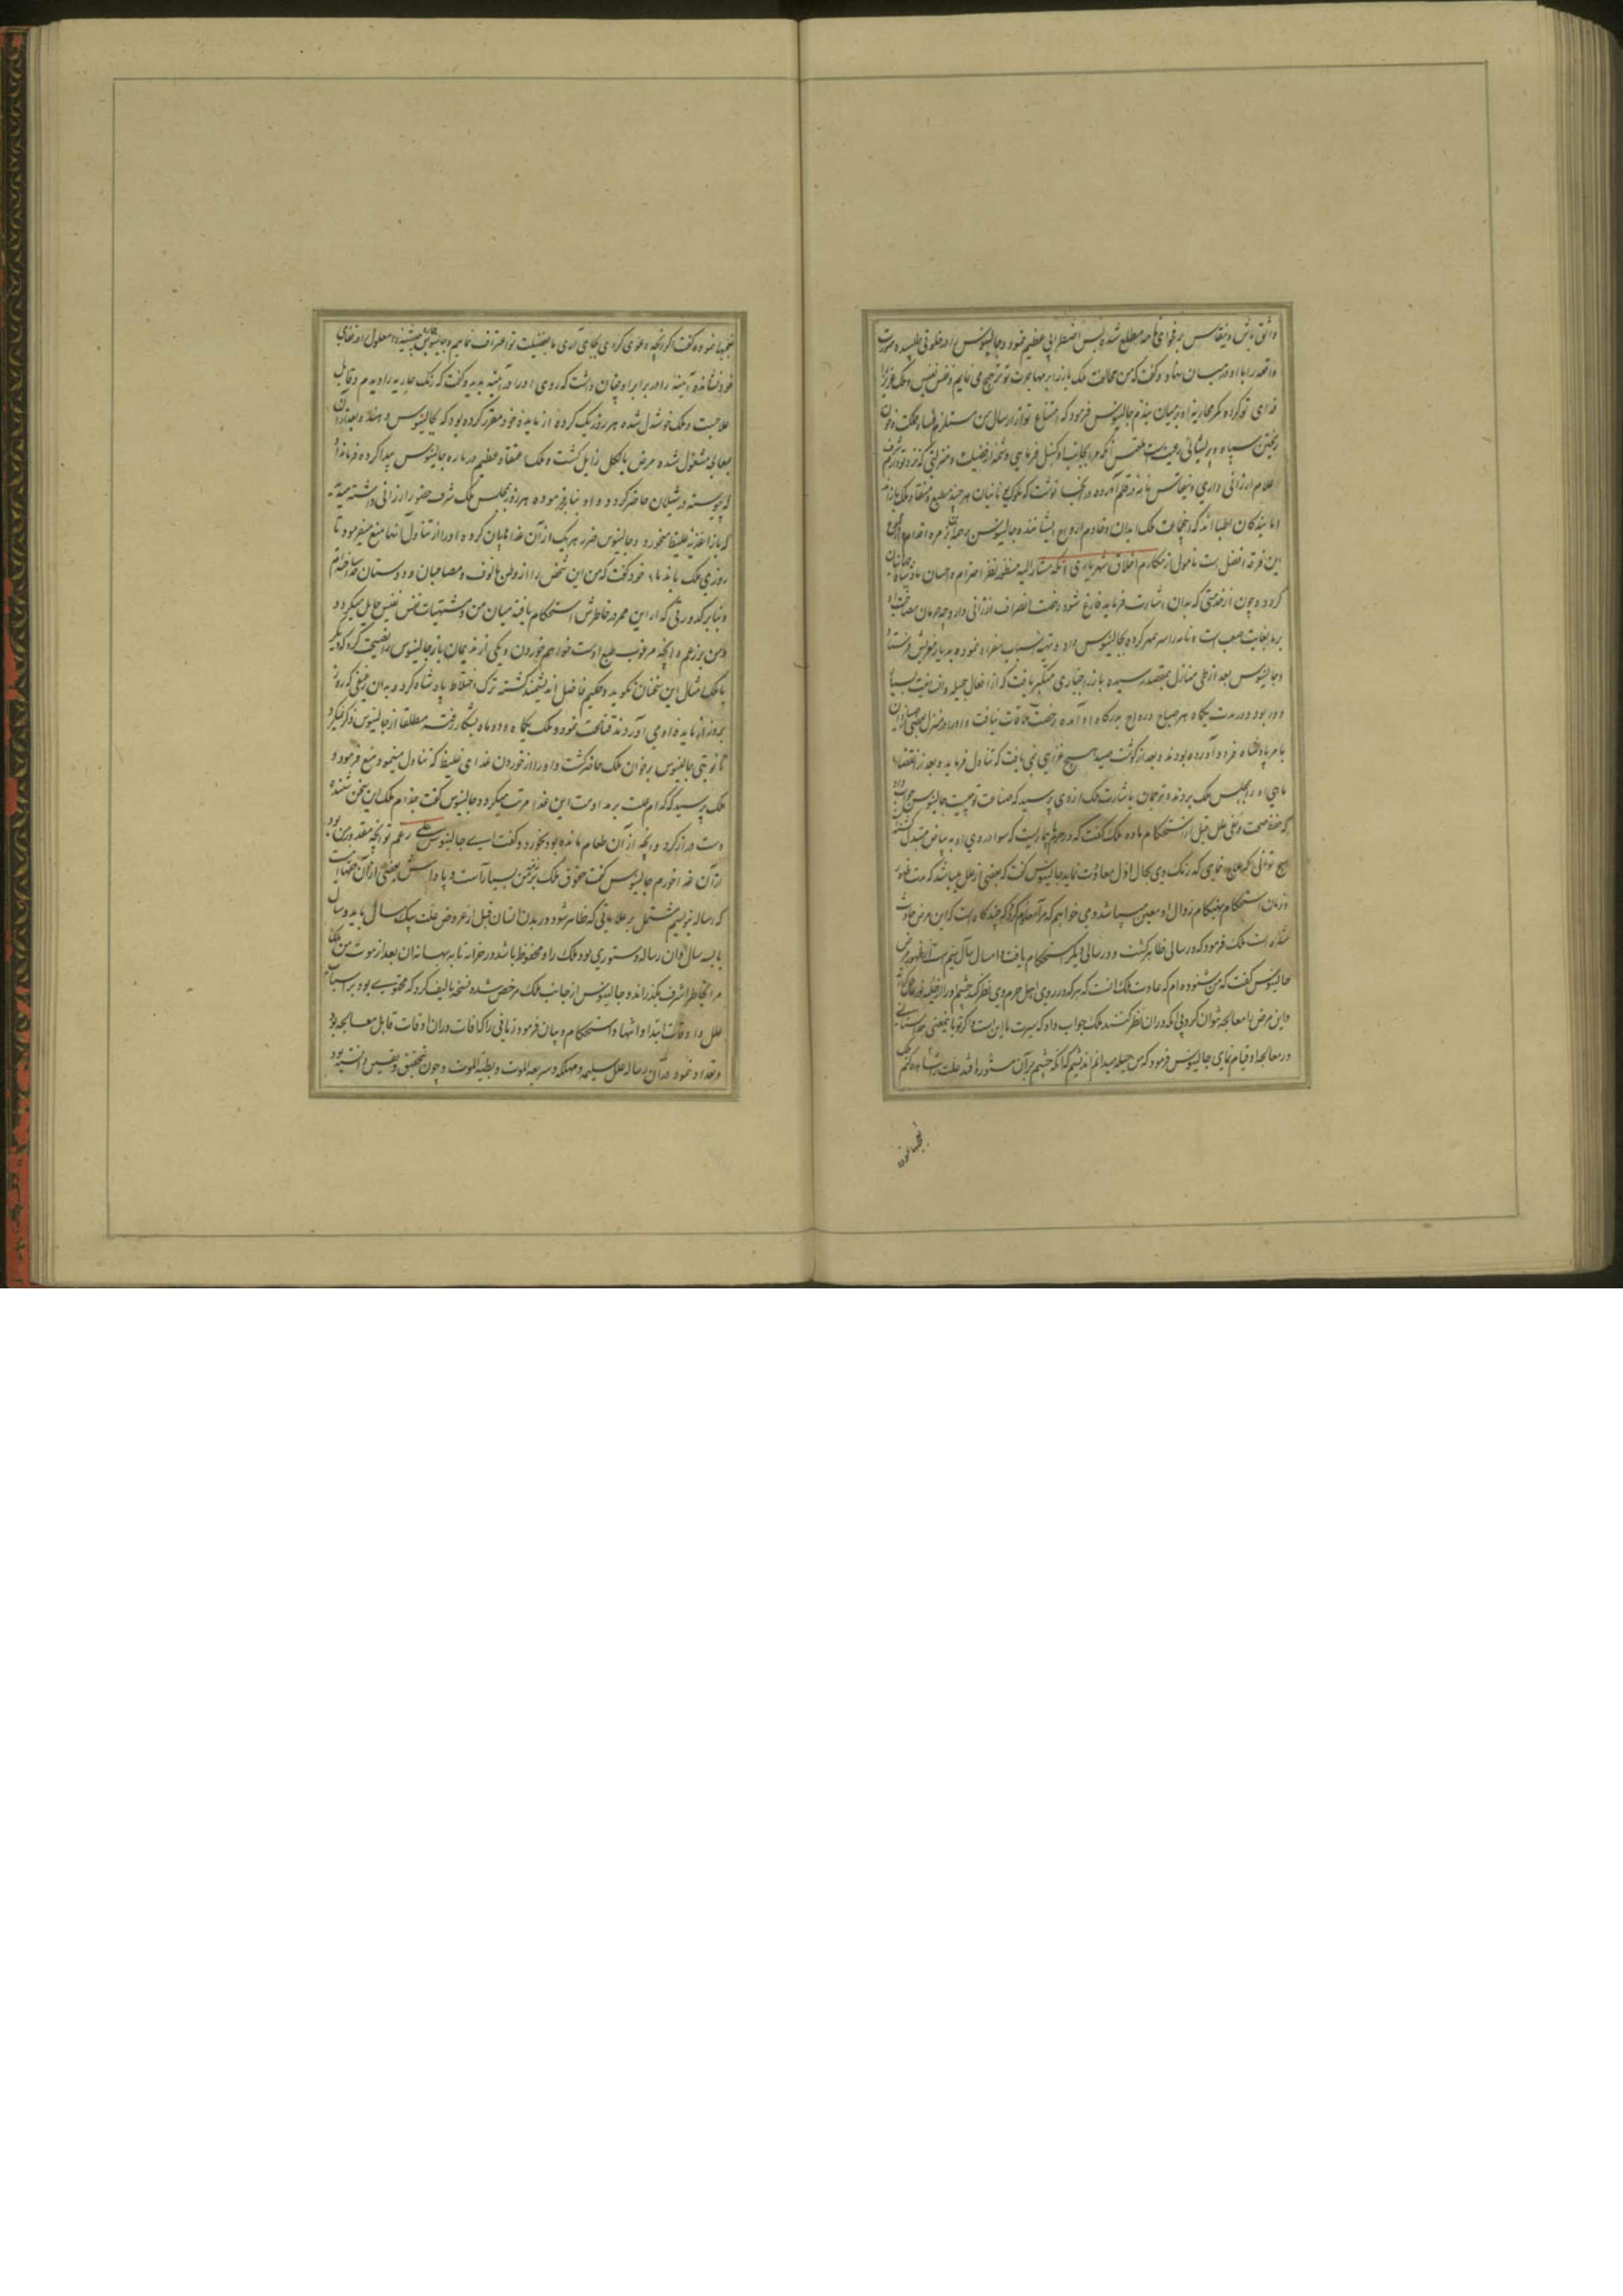 واثق باش و نیقاس بر فحوای نامه مطلع شده بس اضطرابی عظیم نمود و جالینوس را در خلوتی طلبیده صورت
واقعه را با او در میان نهاد و گفت که من مخالفت ملک بارز را بر مهاجرت تو ترجیح می نمایم و نفس نفیس و ملک عزیز را
فدای تو کرده کمر محاربه او بر میان بندم جالینوس فرمود که امتناع تو از ارسال من مستلزم فساد مملکت و خون
ریختن سپاه و پریشانی رعیت است ملتمس آنکه مرا بجانب او گسیل فرمایی و شمه از فضیلت و منزلتی که نزد تو دارم
اعلام ارزانی داری و نیقاس نامه در قلم آورده در آنجا نوشت که ملوک یونانیان هر چند مطیع و منقاد ملک بارزاند
اما بندگان اطبا اند که ایشان ملک ابدان و خادم ارواح ایشانند و جالینوس بر جمله
این فرقه افضل است مامول از مکارم اخلاق شهریاری آنکه مشارالیه منظور نظر احترام و احسان پادشاهانه
گردد و چون از خدمتی که بدان اشارت فرماید فارغ شود رخصت انصراف ارزانی دارد چه حرمان مصاحبت او
بر ما بغایت صعب است و نامه را سر بمهر کرده بجالینوس داد و تهیه اسباب سفر او نموده به دیار مغربش فرستاد
و جالینوس بعد از طی منازل بمقصد رسیده بارز را جباری متکبر یافت که از افعال جمیله و انسانیت بسیار
دور بود و در مدت یکماه هر صباح و رواح بدرگاه او آمده رخصت ملاقات نیافت و او را در منزل
بامر پادشاه فرود آورده بودند و بعد از گوشت صید هیچ غذایی نمی یافت که تناول فرماید و بعد از انقضاء
ماهی او را بمجلس ملک بردند و ترجمان باشارت ملک از وی پرسید که صناعت تو چیست جالینوس جواب داد
که حفظ صحت و نفی علل قبل از استحکام ماده ملک گفت که در حرم ما بیماریست که سواد روی او به بیاض مبدل گشته
هیچ توانی که علاج نمایی که رنگ وی بحال اول معاودت نماید جالینوس گفت که بعضی از علل میباشد که مدت ظهور
و زمان استحکام و هنگام زوال او معین میباشد و می خواهم که مرا معلوم گردد که چند گاه است که این مرض حادث
شده است ملک فرمود که در سالی ظاهر گشت و در سالی دیگر استحکام یافت و امسال سال سیم است از ظهور مرض
جالینوس گفت که من شنوده ام که عادت ملک آنست که هر که در روی اهل حرم وی نظر کند چشم او را
و این مرض را معالجه نتوان کرد بی آنکه در آن نظر کنند ملک جواب داد که سیرت ما این است و اگر تو باین معنی
در معالجه او قیام نمای جالینوس فرمود که من حیله میدانم اندیشم که آنکه چشم بر آن مستوره افتد علت را مشاهده کنم
ملک
فرمود و گفت اگر آنچه دعوی کردی بجای آری ما بفضیلت تو اعتراف نماییم و جالینوس معلول را در قفای
خود نشانده آینه را در برابر او چنان داشت که روی او را در آینه بدید و گفت که رنگ جاریه را دیدم و قابل
علاجست و ملک خوشدل شده هر روز یک گرده از مایده خود مقرر کرده بود که بجالینوس دهند و بعد از آن
بمعالجه مشغول شده مرض بالکل زایل گشت و ملک اعتقاد عظیم درباره جالینوس پیدا کرده فرمان داد
که پیوسته در شیلان حاضر گردد و او بنا بر فرموده هر روز بمجلس ملک شرف حضور ارزانی داشته میدید
که بارز اغذیه غلیظ میخورد و جالینوس ضرر هر یک از آن غذا بیان کرده او را از تناول آنها منع میفرمود تا
روزی ملک با ندماء خود گفت که من این شخص را از وطن مالوف و مصاحبان و دوستان جدا ساختم
و بنا بر کدورتی که از این ممر در خاطرش استحکام یافته میان من و مشتهیات نفس نفیس حایل میگردد
و من بر رغم او آنچه مرغوب طبع اوست خواهم خوردن و یکی از ندیمان بارز جالینوس را نصیحت کرد که دیگر
با ملک امثال این سخنان نگوید و حکیم فاضل اندیشمند گشته ترک اختلاط پادشاه کرد و بدان رغیفی که روز
بروز از مایده او می آوردند قناعت نمود و ملک یکماه و دو ماه بشکار رفته مطلقا از جالینوس ذکر نمیکرد
تا نوبتی جالینوس بر خوان ملک حاضر گشت و او را از خوردن غذای غلیظ که تناول مینمود منع فرمود و
ملک پرسید که کدام علت بر مداومت این غذا مرتب میگردد جالینوس گفت جذام ملک این سخن شنیده
دست دراز کرد و آنچه از آن طعام مانده بود بخورد و گفت ای جالینوس علی رغم تو آنچه مقدور من بود
از آن غذا خوردم جالینوس گفت حقوق ملک بر من بسیار است و پاداش بعضی از آن حقها آنست
که رساله نویسم مشتمل بر علاماتی که ظاهر شود در بدن انسان قبل از عروض علت بیک سال یا بدو سال
یا بسه سال و آن رساله دستوری بود ملک را و محفوظ باشد در خزانه تا به بهانه آن بعد از موت من ملک
مرا بخاطر اشرف بگذراند و جالینوس از جانب ملک مرخص شده نسخه تالیف کرد که محتوی بود بر اسباب
علل و اوقات ابتدا و انتها و استحکام و بیان فرمود زمانی را که آفات در آن اوقات قابل معالجه بود
و تعداد نمود در آن رساله علل سلیمه و مهلکه و سریعة الموت و بطیئة الموت و چون بتحقیق و یقین دانسته بود